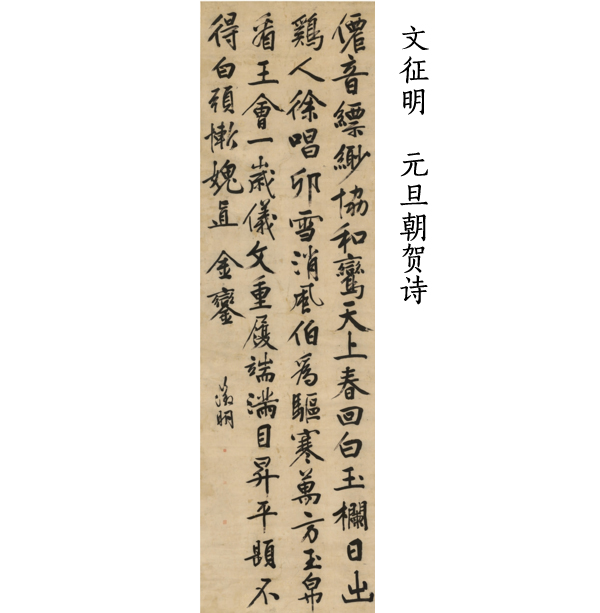 文征明 元旦朝贺诗
僊音縹緲恊和鸞天上春回白玉欄日出
鷄人徐唱卯雪消風伯爲驅寒萬方玉帛
看王會一歲儀文重履端滿目昇平題不
得白頭慚媿直金鑾
徵明